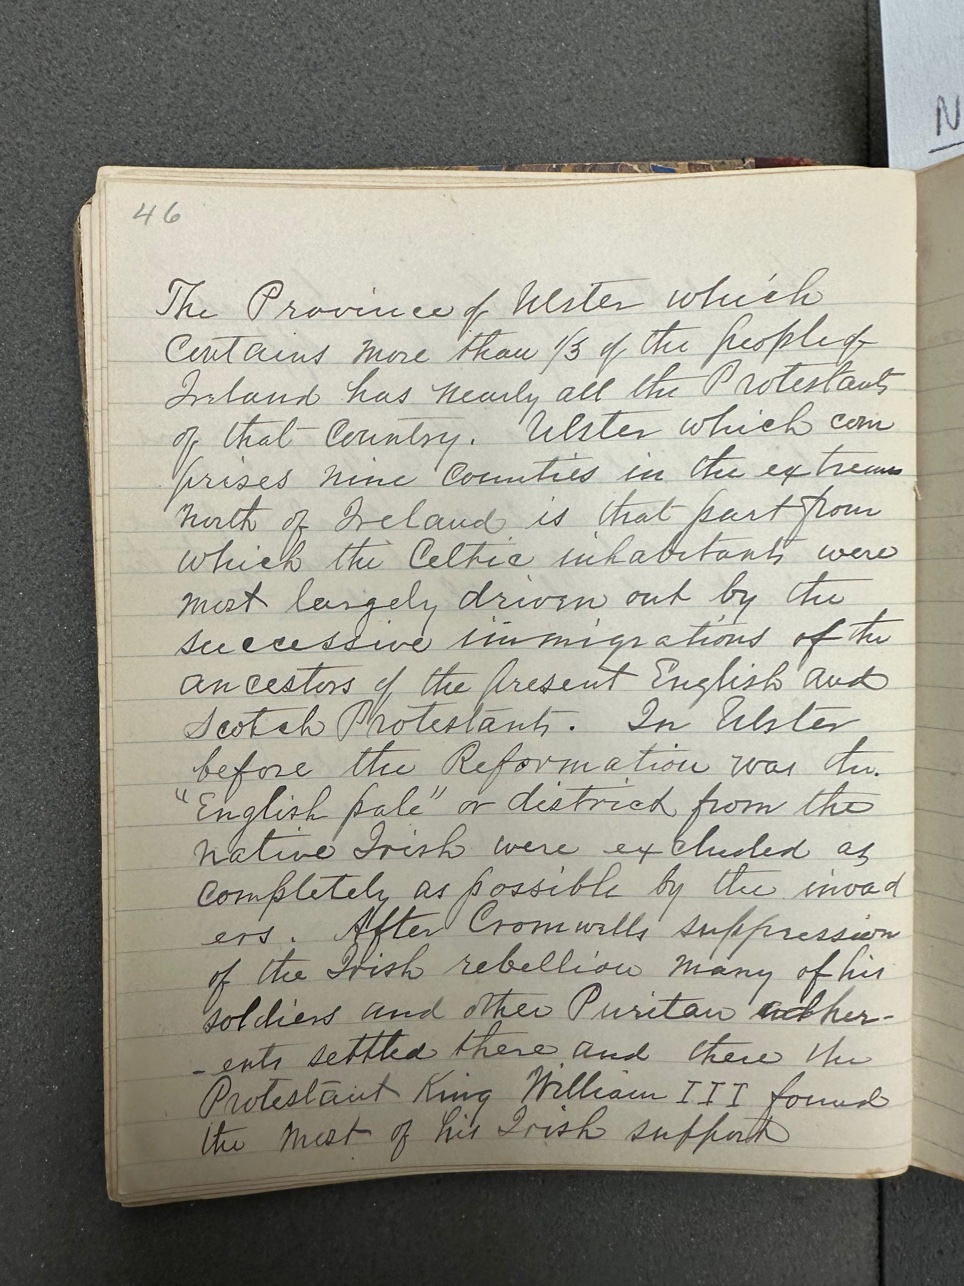 46
N
The Province of Ulster which
contains more than 1/3 of the people of
Ireland has nearly all the Protestants
of that Country. Ulster which com
prises nine counties in the extreme
north of Ireland is that part from
which the Celtic inhabitants were
most largely driven out by the
successive immigrations of the
ancestors of the present English and
Scotch Protestants. In Ulster
before the Reformation was the
"English pale" or district from the
native Irish were excluded as
completely as possible by the invad
ers. After Cromwells suppression
of the Irish rebellion many of his
soldiers and other Puritan adher-
-ents settled there and there the
Protestant King William III found
the most of his Irish support